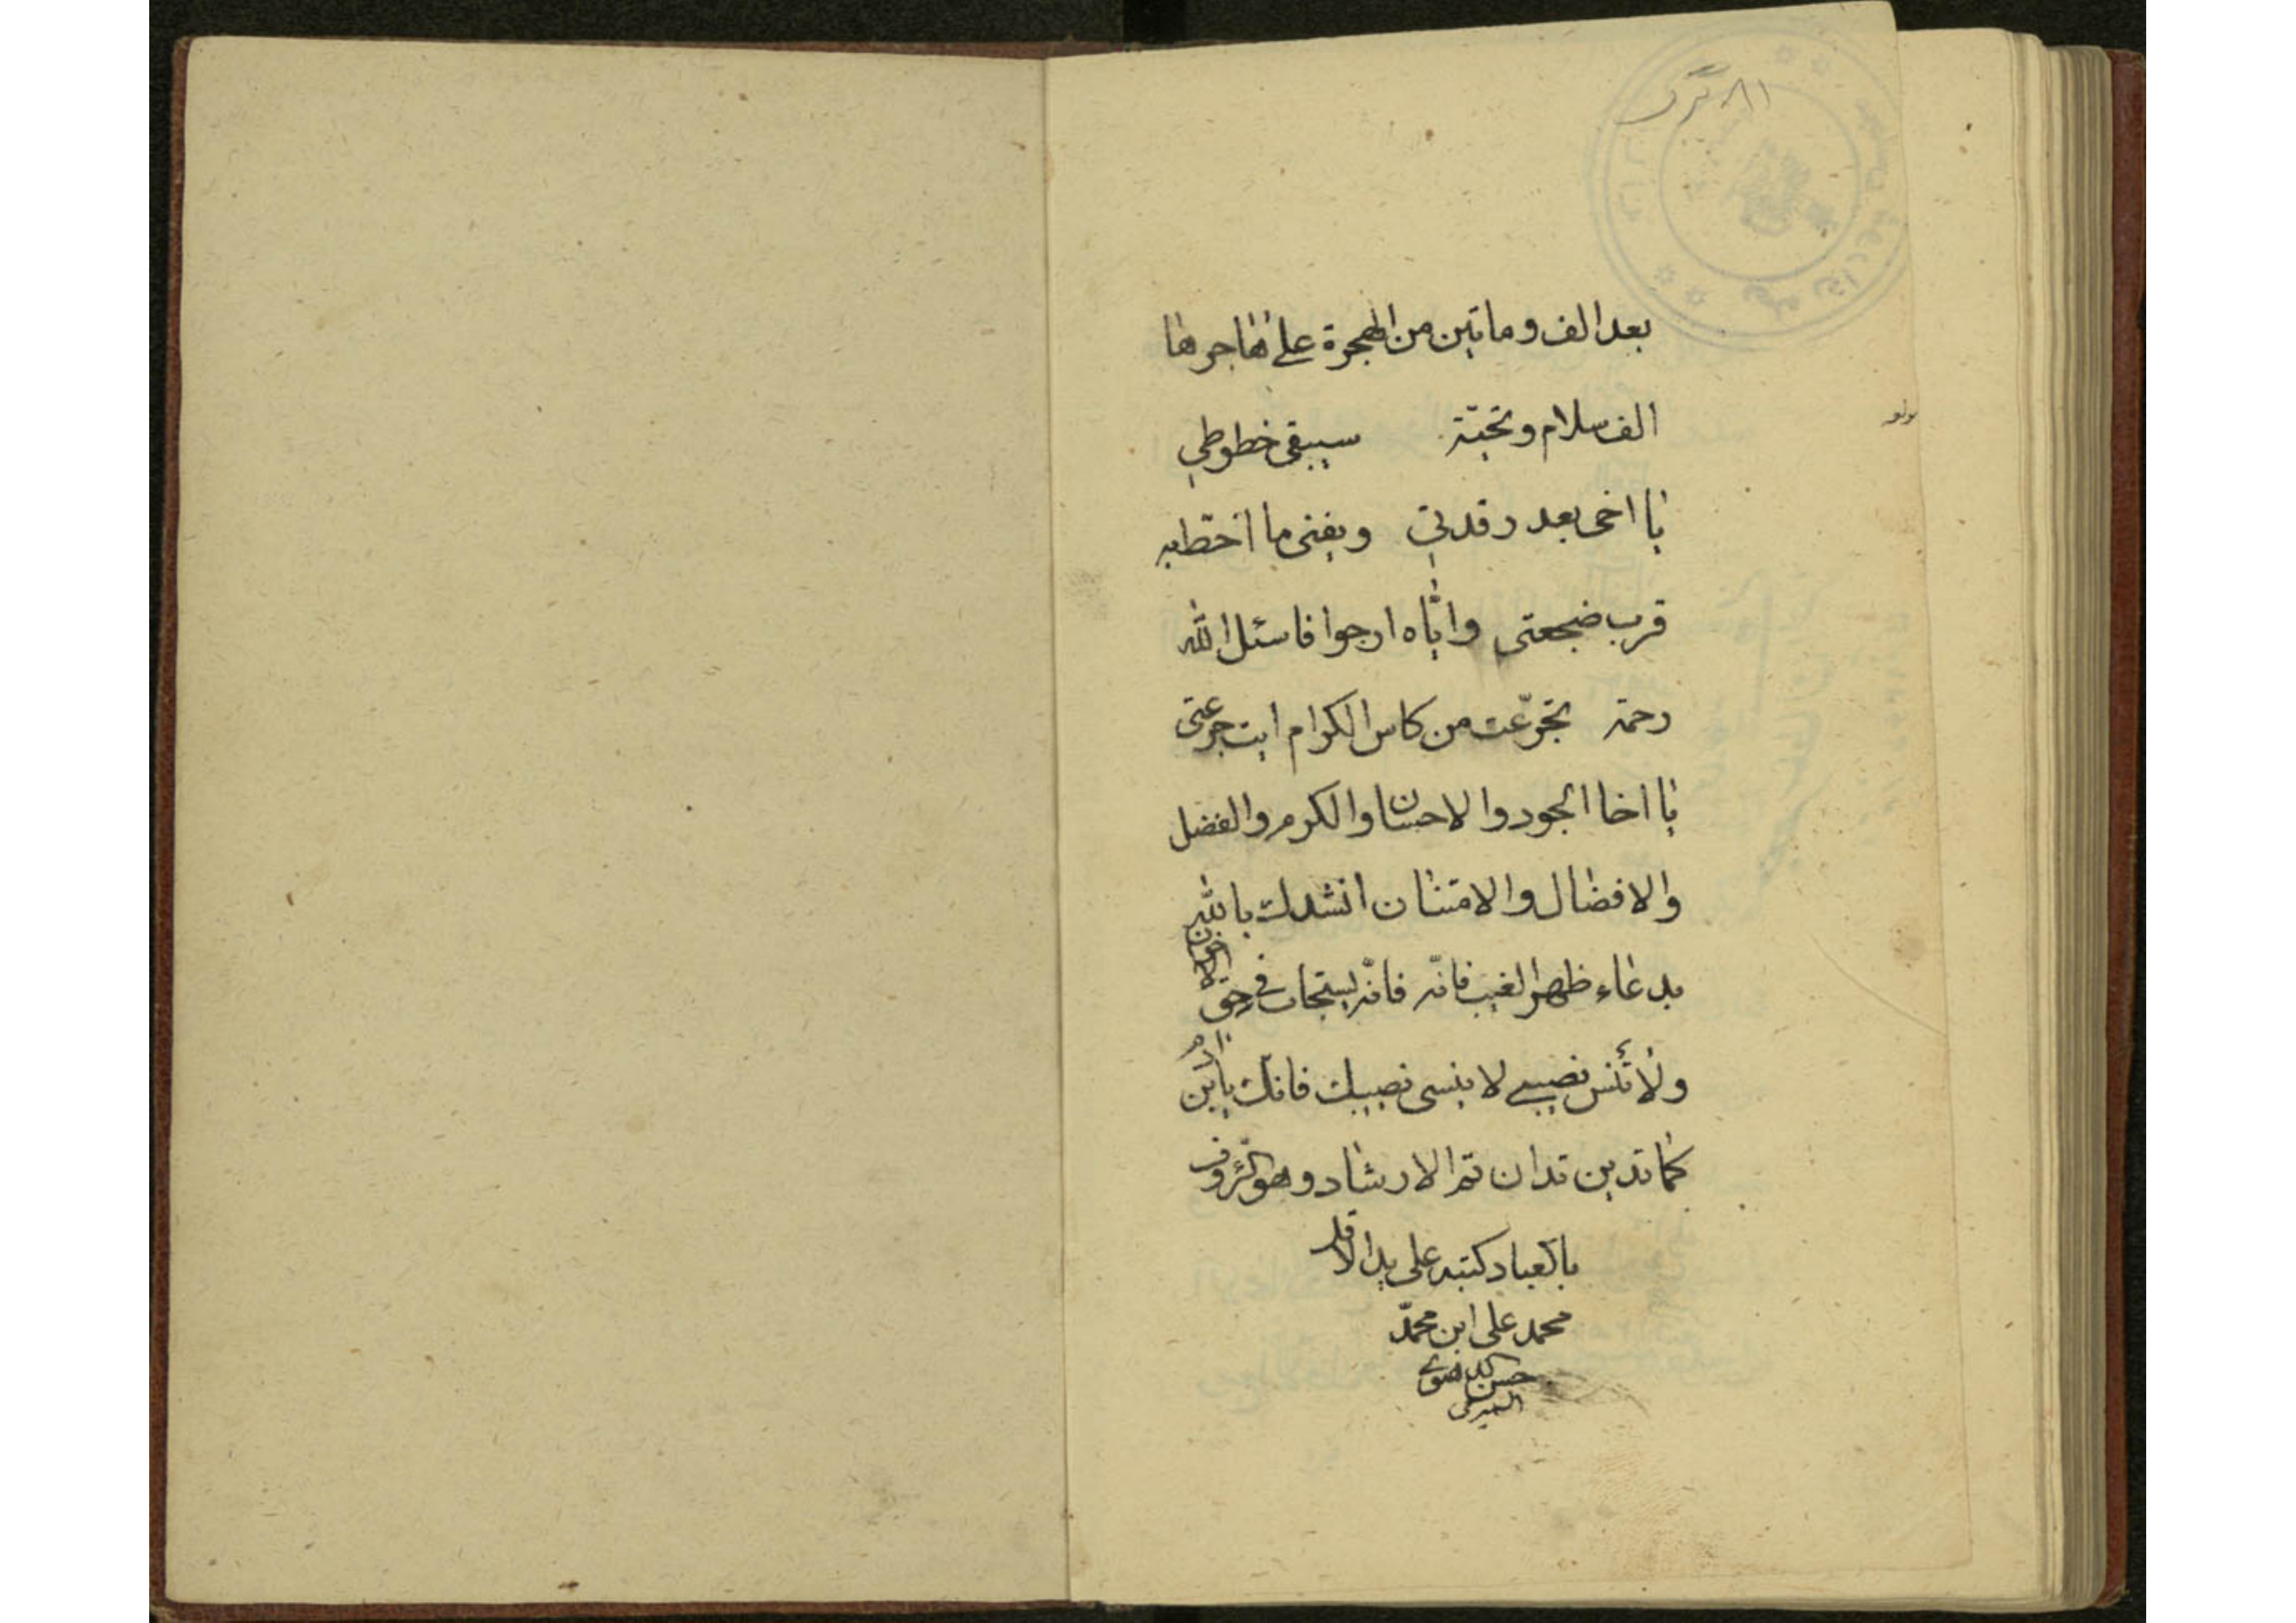 بعد الف و ماتین من الهجرة علی هاجرها
الف سلام و تحیّة سیبقی خطوطی
یا اخی بعد رقدتی و یفنی ما اخطّ به
قرب ضجعتی و ایّاه ارجوا فاسئل الله
رحمة تجرّعت من کاس الکرام ابت جرعتی
یا اخا الجود و الاحسان و الکرم و الفضل
و الافضال و الامتنان انشدک بالله
بدعاء ظهر الغیب فانّه فانّه یستجاب فی حق الاخوان
و لا تنس نصیبی لا ینسی نصیبک فانک یابن ادم
کما تدین تدان تمّ الارشاد و هو الرّؤف
بالعباد کتبه علی ید الاقل
محمد علی ابن محمّد
حسن